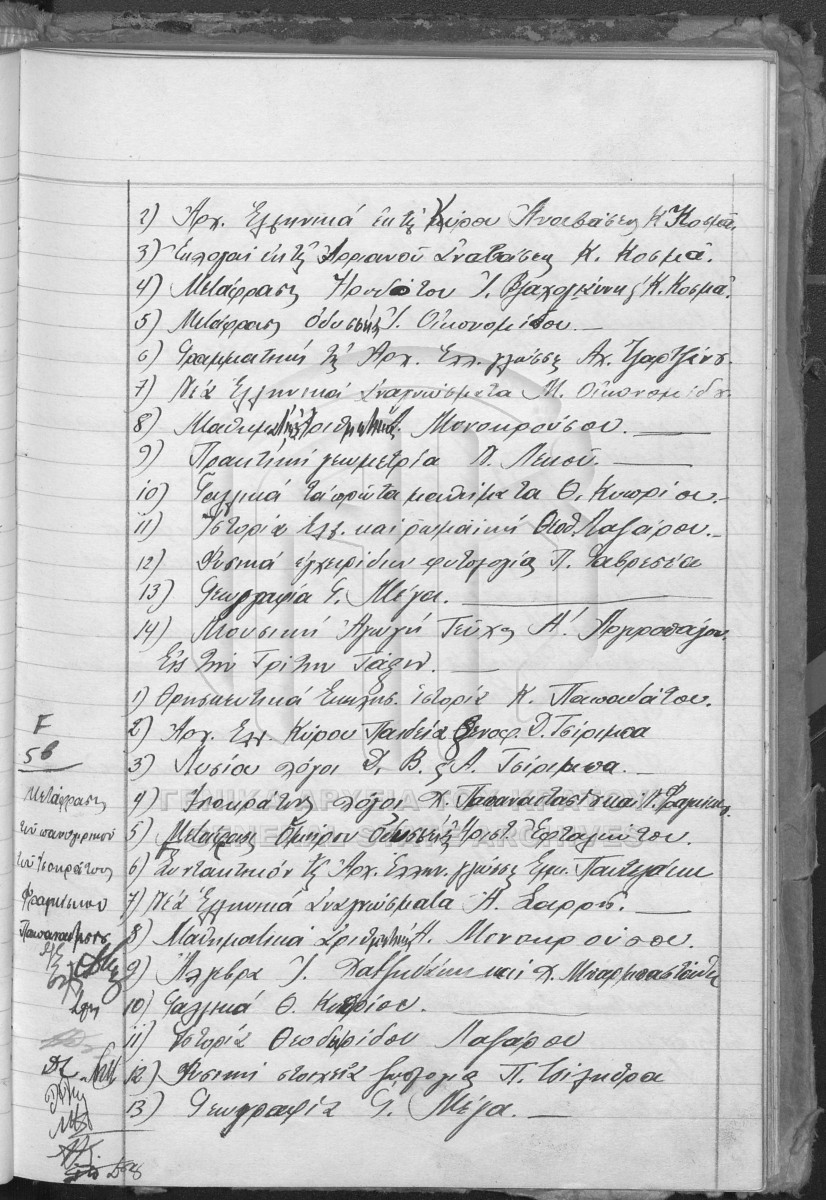 2) Αρχ. Ελληνικά εκ της Κύρου Αναβάσεως Κ. Κοσμά.
3) Εκλογαί εκ της Αρριανού Αναβάσεως Κ. Κοσμά.
4) Μετάφρασις Ηροδότου Ι. Βλαχογιάννη Κ. Κοσμά.
5) Μετάφρασις Οδυσσείας Ι. Οικονομίδου. —
6) Γραμματική της Αρχ. Ελλ. γλώσσης Αχ. Τζαρτζάνου.
7) Νέα Ελληνικά Αναγνώσματα Μ. Οικονομίδου.
8) Μαθημ. Αριθμητική Μονοκρούσου. —
9) Πρακτική γεωμετρία Λεκού. —
10) Γαλλικά τα πρώτα μαθήματα Θ. Κυπρίου. —
11) Ιστορία Ελλ. και ρωμαϊκή Θεοδ. Λαζάρου. —
12) Φυσικά εγχειρίδιον φυτολογίας Π.
13) Γεωγραφία Γ. Μέγα. —
14) Μουσική Αγωγή Τεύχος Α'. Αργυροπούλου.
Εις την Τρίτην Τάξιν. —
1) Θρησκευτικά Εκκλησ. ιστορία Κ.
2) Αρχ. Ελλ. Κύρου Παιδεία Ξενοφ. Δ. Τσίριμπα
3) Λυσίου λόγοι Δ. Β. & Α. Τσίριμπα. —
4) Ισοκράτους λόγοι Χ. Παπαναστασίου
5) Μετάφρασις Ομήρου Οδυσσείας Αριστ.
6) Συντακτικόν της Αρχ. Ελλην. γλώσσης Εμμ. Παντελάκη
7) Νέα Ελληνικά Αναγνώσματα Α. Σαρρή. —
8) Μαθηματικά Αριθμητική Α. Μονοκρούσου.
9) Άλγεβρα Ι. Χατζηδάκη και Χ. Μπαρμπαστάθη
10) Γαλλικά Θ. Κυπρίου. —
11) Ιστορία Θεοδωρίδου Λαζάρου
12) Φυσική στοιχεία ζωολογίας Π. Τσίληθρα
13) Γεωγραφία Γ. Μέγα. —
F
56
Μετάφρασις
του πανηγυρικού
του Ισοκράτους
Φραγκίσκου
ΓΕΝΙΚΑ ΑΡΧΕΙΑ ΤΟΥ ΚΡΑΤΟΥΣ
GENERAL STATE ARCHIVES